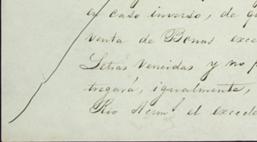 el caso inverso, de
venta de Bonos exce
Letras Vencidas y no p
tregará, igualmente,
Rio Herm.º el excede